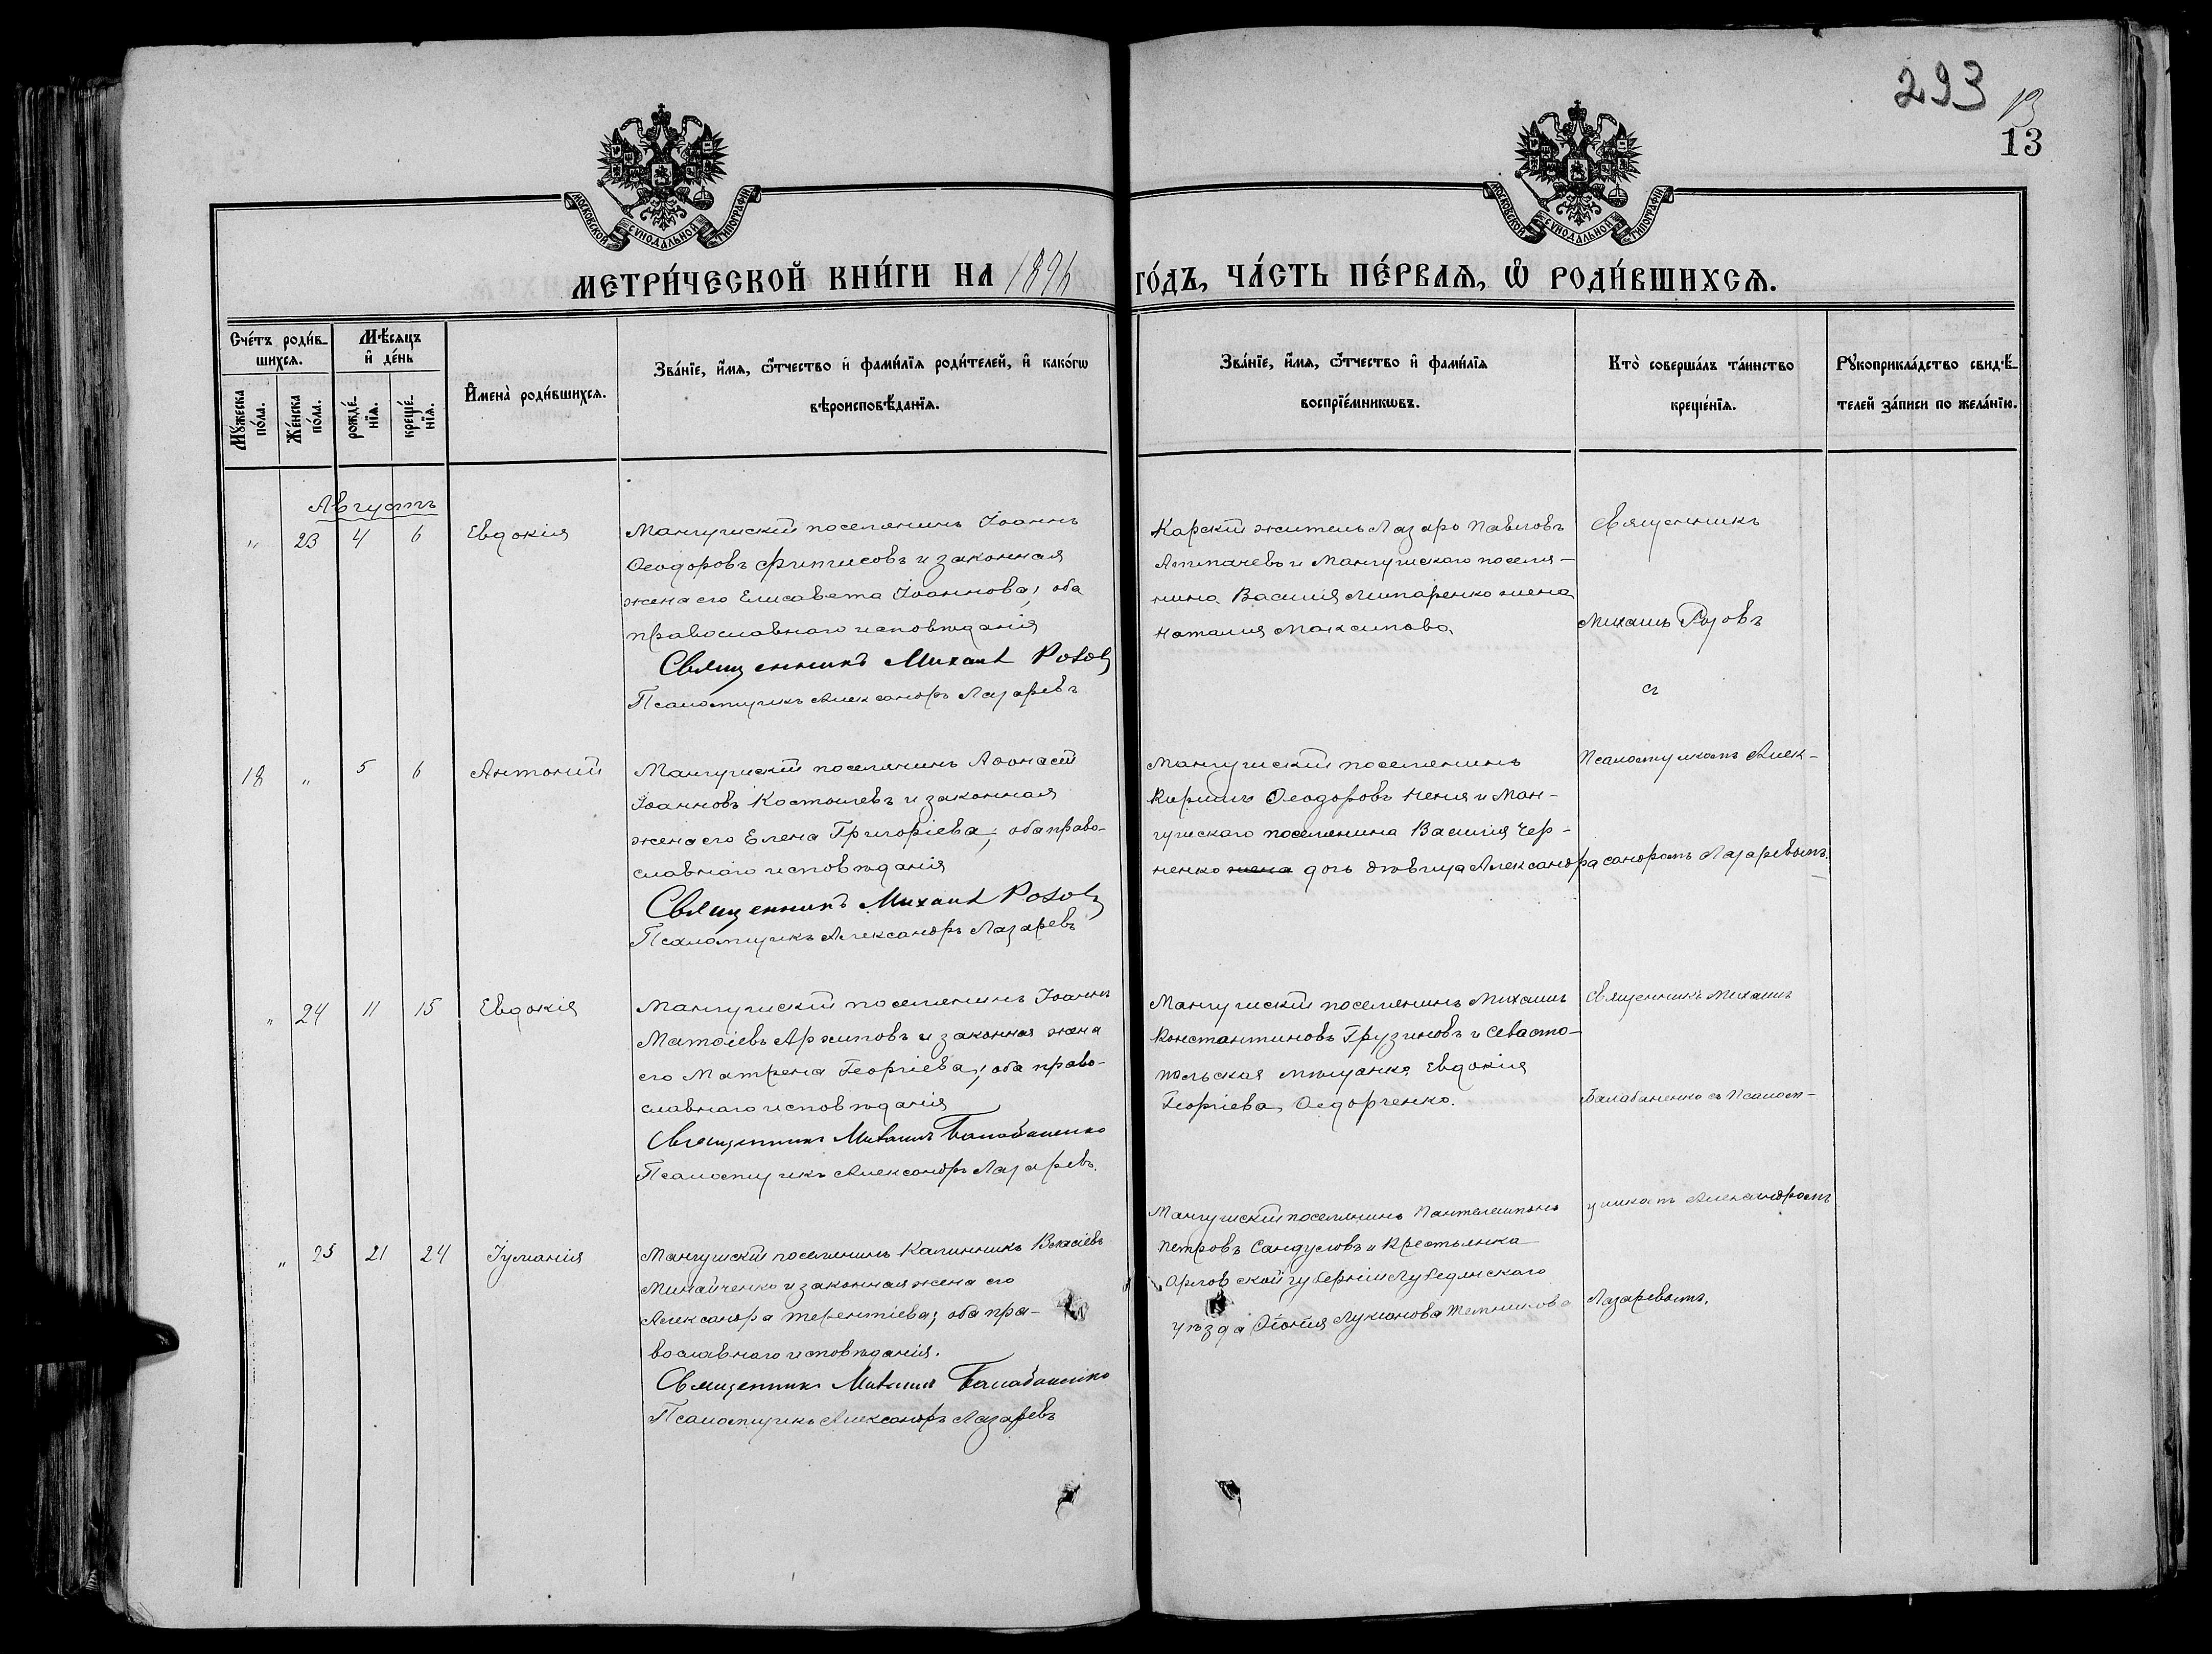 293
13
13
МОСКОВСКОЙ СѴНОДАЛЬНОЙ ТИПОГРАФІИ
МОСКОВСКОЙ СѴНОДАЛЬНОЙ ТИПОГРАФІИ
МЕТРИ́ЧЕСКОЙ КНИ́ГИ НА 1896 ГО́ДЪ, ЧА́СТЬ ПЕ́РВАѦ, Ѽ РОДИ́ВШИХСѦ.
Сче́тъ роди́в-
шихсѧ.
Мꙋ́жеска
по́ла.
Же́нска
по́ла.
Мѣ́сѧцъ
и҆ де́нь
рожде́-
нїѧ.
креще́-
нїѧ.
И҆мена̀ роди́вшихсѧ.
Зва́нїе, и҆́мѧ, ѻ҆́тчество и҆ фами́лїѧ роди́телей, и҆ како́гѡ
вѣроисповѣ́данїѧ.
Зва́нїе, и҆́мѧ, ѻ҆́тчество и҆ фами́лїѧ
воспрїе́мникѡвъ.
Кто̀ соверша́лъ та́инство
креще́нїѧ.
Рꙋкоприкла́дство свидѣ́-
телей за́писи по жела́нїю.
Августъ
„ 23 4 6 Евдокія
Мангушскій поселянинъ Іоаннъ
Ѳеодоровъ Фитисовъ и законная
жена его Елисавета Іоаннова; оба
православнаго исповѣданія
Священникъ Михаил Розовъ
Псаломщикъ Александръ Лазаревъ
Карскій житель Лазарь Павловъ
Атмачевъ и Мангушскаго поселя-
нина Василія Липаренко жена
Наталия Максимова.
Священникъ
Михаилъ Розовъ
съ
18 „ 5 6 Антоній
Мангушскій поселянинъ Аѳонасій
Іоанновъ Костылевъ и законная
жена его Елена Григоріева; оба право-
славнаго исповѣданія
Священникъ Михаил Розовъ
Псаломщикъ Александръ Лазаревъ
Мангушскій поселянинъ
Кирилъ Ѳеодоровъ Неня и Ман-
гушскаго поселянина Василія Чер-
ненко жена дочь дѣвица Александра
Псаломщикомъ Алек-
сандромъ Лазаревымъ.
„ 24 11 15 Евдокія
Мангушскій поселянинъ Іоаннъ
Матѳіевъ Архиповъ и законная жена
его Матрена Георгіева; оба право-
славнаго исповѣданія
Священникъ Михаилъ Балабаненко
Псаломщикъ Александръ Лазаревъ.
Мангушскій поселянинъ Михаилъ
Константиновъ Грузиновъ и Севасто-
польская мѣщанка Евдокія
Георгіева Ѳедорченко.
Священникъ Михаилъ
Балабаненко съ Псалом-
щикомъ Александромъ
Лазаревымъ.
„ 25 21 24 Іуліанія
Мангушскій поселянинъ Калинникъ Власіевъ
Минайченко и законная жена его
Александра Терентіева; оба пра-
вославнаго исповѣданія.
Священникъ Михаилъ Балабаненко
Псаломщикъ Александръ Лазаревъ
Мангушскій поселянинъ Пантелеимонъ
Петровъ Сандуловъ и Крестьянка
Орловской губерніи
уѣзда Лукіанова